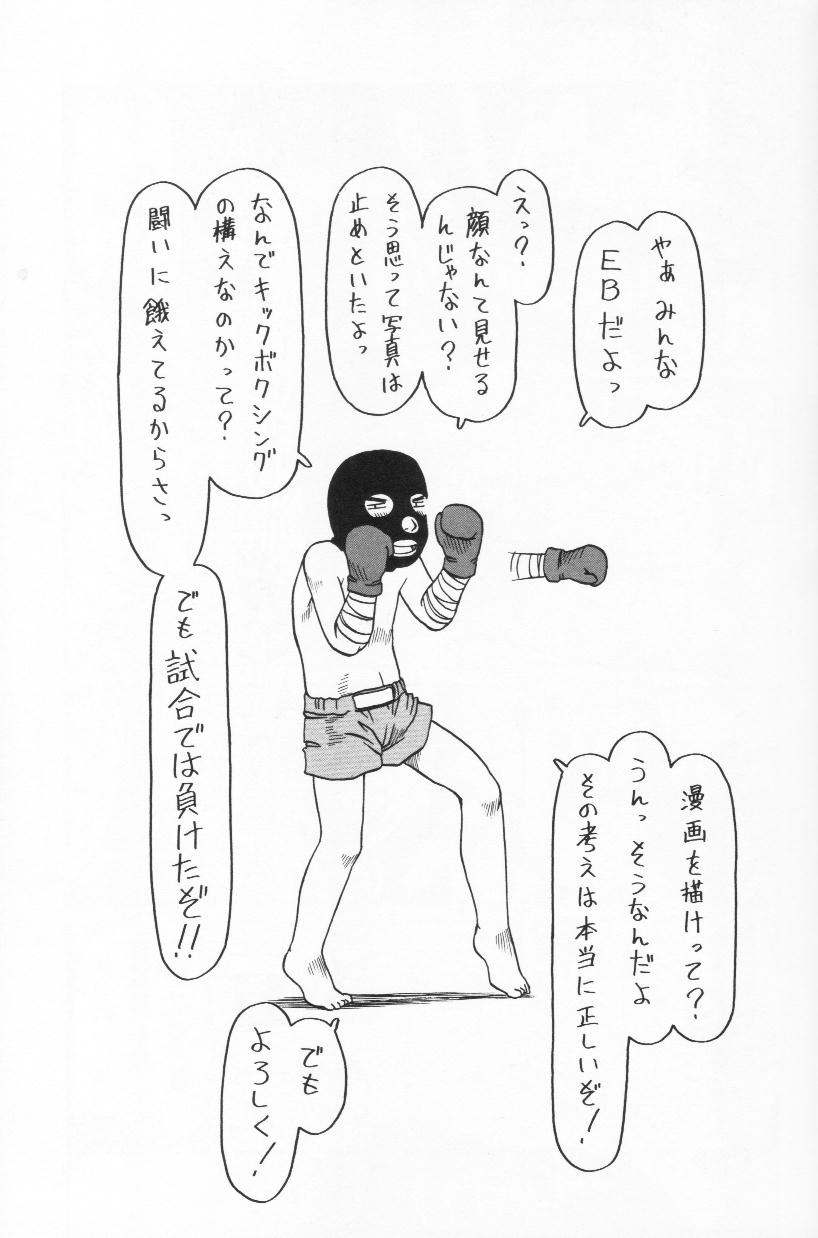 やぁ みんな
EBだよっ
えっ?
顔なんて見せる
んじゃない?
そう思って写真は
止めといたよっ
なんでキックボクシング
の構えなのかって?
闘いに餓えてるからさっ
でも試合では負けたぞ!!
漫画を描けって?
うんっ そうなんだよ
その考えは本当に正しいぞ!
でも
よろしく!